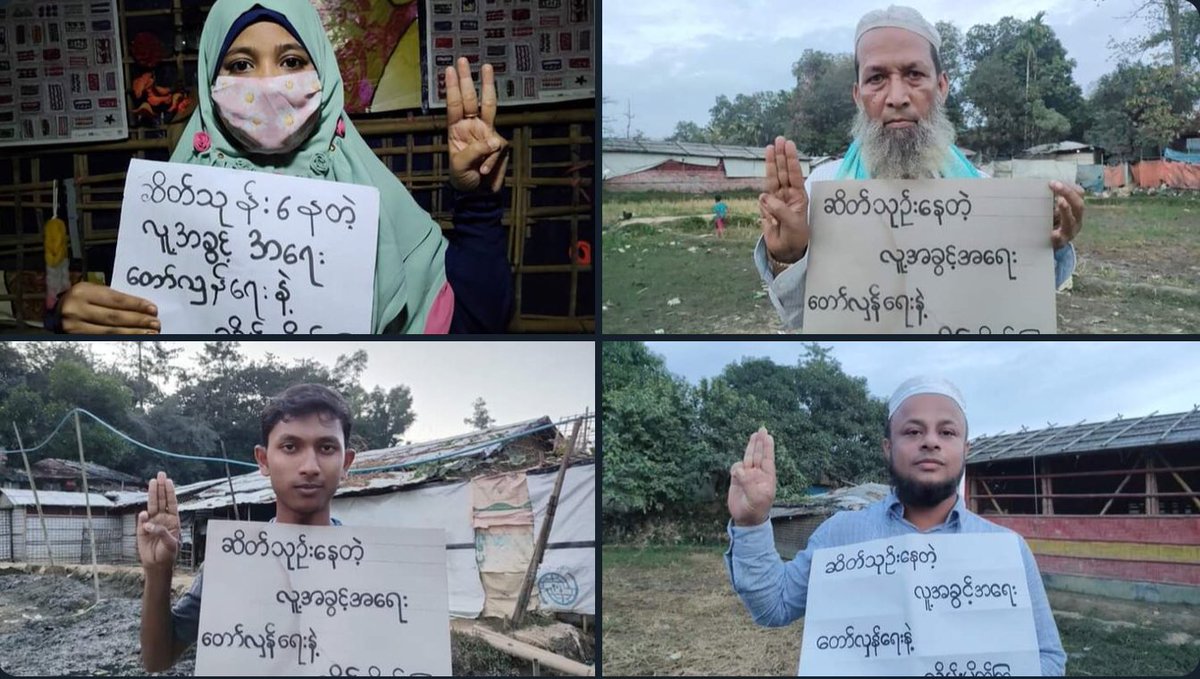 ဆိတ်သုန်းနေတဲ့
လူ့အခွင့် အရေး
တော်လှန်ရေးနဲ့
ဆိတ်သုဉ်းနေတဲ့
လူ့အခွင့်အရေး
တော်လှန်ရေးနဲ့
ဆိတ်သုဉ်းနေတဲ့
လူ့အခွင့်အရေး
တော်လှန်ရေးနဲ့
ဆိတ်သုဉ်းနေတဲ့
လူ့အခွင့်အရေး
တော်လှန်ရေးနဲ့